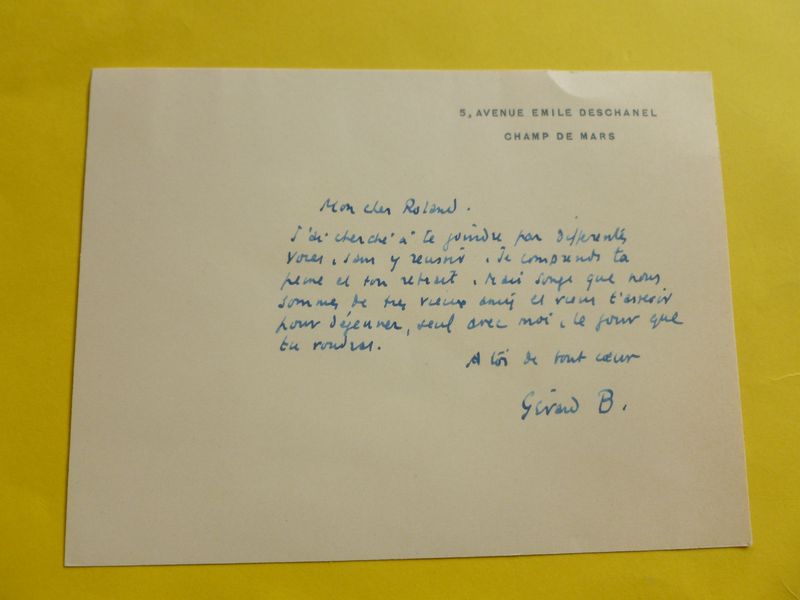 5, AVENUE EMILE DESCHANEL
CHAMP DE MARS
Mon cher Roland.
J'ai cherché à te joindre par différentes
voies, sans y reussir. Je comprends ta
peine et ton retrait. Mais songe que nous
sommes de très vieux amis et viens t'asseoir
pour déjeuner, seul avec moi, le jour que
tu voudras.
A toi de tout cœur
Gérard B.